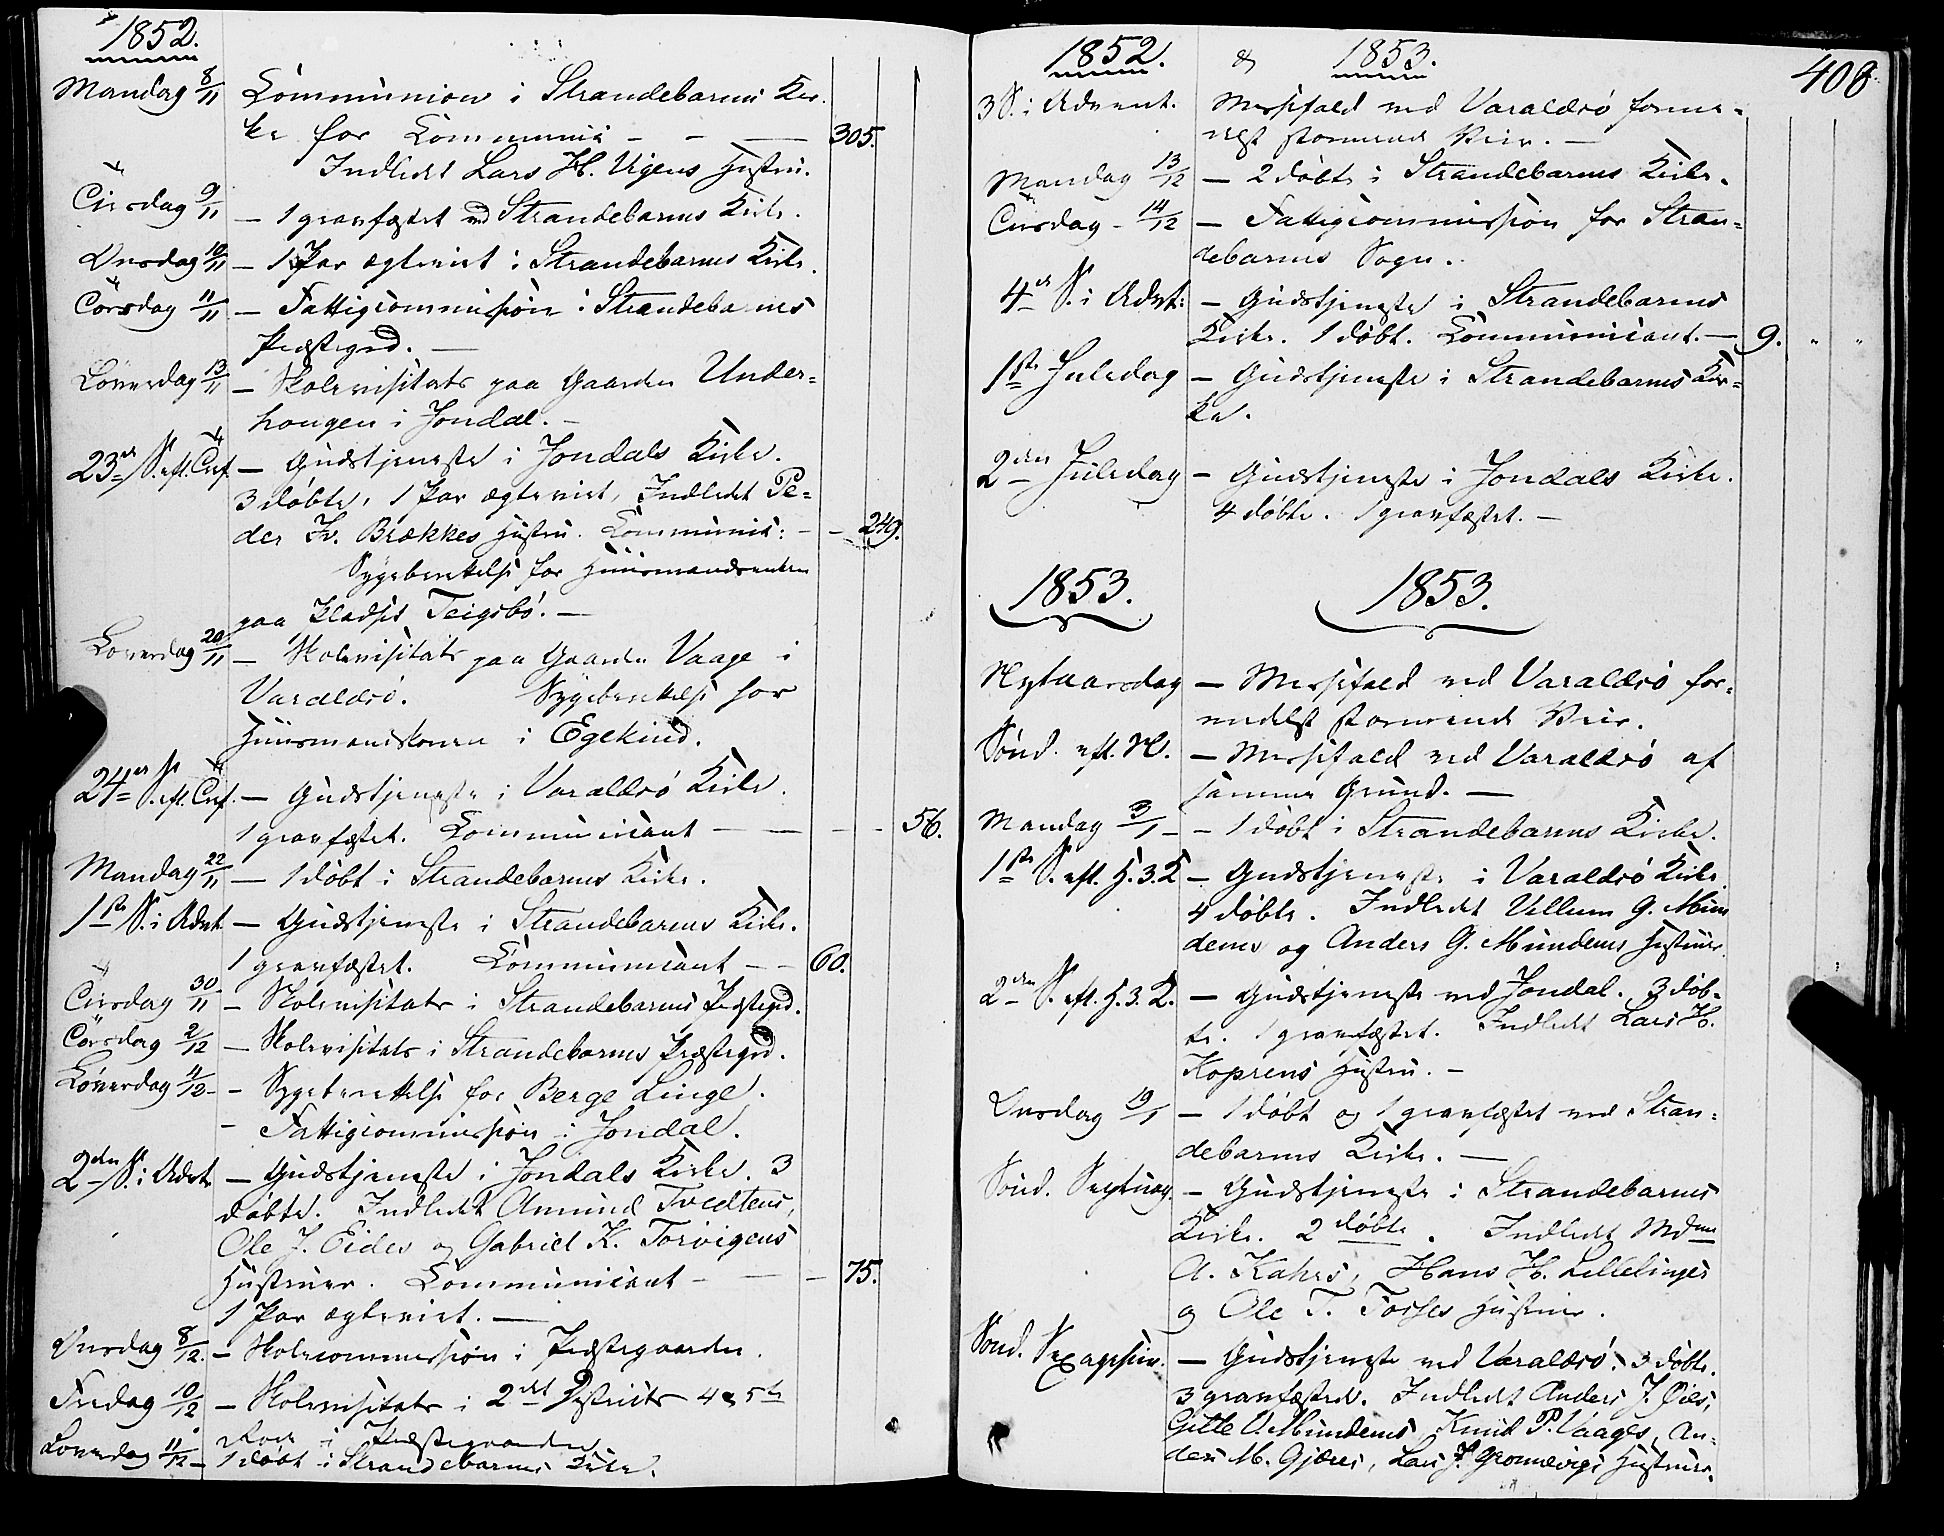 1852.
Mandag 8/11 Communion i Strandebarms Kir-
ke for Communic - - — 305.
Indledet Lars H. Vigens Hustru.
Tirsdag 9/11 — 1 gravfæstet ved Strandebarms Kirke.
Onsdag 10/11 — 1 Par ægteviet i Strandebarms Kirke.
Torsdag 11/11 — Fattigcommission i Strandebarms
Præstegrd. —
Löverdag 13/11 — Skolevisitats paa Gaarden Under-
hougen i Jondal. —
23de S. eft. Tref. — Gudstjeneste i Jondals Kirke.
3 døbte, 1 Par ægteviet, Indledet Pe-
der Iv. Brækkes Hustru. Communic: - - 249.
Sygeberettelse for Huusmandsenken
paa Pladset Teigsbö. —
Loverdag 20/11 — Skolevisitats paa Gaarden Vaage i
Varaldsö. Sygeberettelse for
Huusmandskonen i Egekind.
24de S. eft. Tref. — Gudstjeneste i Varaldsö Kirke.
1 gravfæstet. Communicant — — - - 56.
Mandag 22/11 — 1 döbt i Strandebarms Kirke.
1ste S. i Advt. — Gudstjeneste i Strandebarms Kirke.
1 gravfæstet. Communicant - - 60.
Tirsdag 30/11 — Skolevisitats i Strandebarms Præstegrd.
Torsdag 2/12 — Skolevisitats i Strandebarms Præstegrd.
Löverdag 4/12 - - Sygeberettelse for Berge Linge.
- Fattigcommission i Jondal.
2den S. i Advt. — Gudstjeneste i Jondals Kirke. 3
döbte. Indledet Amund Tvedtens,
Ole J. Eides og Gabriel K. Torvigens
Hustruer. Communicant - — - 75.
1 Par ægteviet. —
Onsdag 8/12. — Skolecommission i Præstegaarden.
Fredag 10/12 — Skolevisitats i 2det Districts 4 & 5te
Rode i Præstegaarden
Loverdag 11/12 — 1 döbt i Strandebarms Kirke.
1852. & 1853. 408
3 S. i Advent. Messefald ved Varaldsö forme-
delst stormende Veir. —
Mandag 13/12 — 2 döbte i Strandebarms Kirke.
Tirsdag - 14/12 — Fattigcommission for Stran-
debarms Sogn.
4de S. i Advt: — Gudstjeneste i Strandebarms
Kirke. 1 döbt. Communicant. — 9. " "
1ste Juledag — Gudstjeneste i Strandebarms Kir-
ke.
2den Juledag — Gudstjeneste i Jondals Kirke.
4 döbte. 1 gravfæstet. —
1853. 1853.
Nytaarsdag — Messefald ved Varaldsö for-
medelst stormende Veir.
Sönd. eft. N. — Messefald ved Varaldsö af
samme Grund. —
Mandag 3/1 - — 1 döbt i Strandebarms Kirke.
1ste S. eft. H. 3. K — Gudstjeneste i Varaldsö Kirke.
4 döbte. Indledet Villum G. Mun
dems og Anders G. Mundems Hustruer
2den S. eft. H. 3. K. — Gudstjeneste ved Jondal. 3 döb-
te. 1 gravfæstet. Indledet Lars H.
Koprens Hustru. —
Onsdag 19/1 — 1 döbt og 1 gravfæstet ved Stran-
debarms Kirke. —
Sönd. Septuag. — Gudstjeneste i Strandebarms
Kirke. 2 döbte. Indledet Mdme
A. Kahrs, Hans H. Lillelinges
og Ole T. Fosses Hustruer.
Sönd. Sexagesim. — Gudstjeneste ved Varaldsö. 3 döbte.
3 gravfæstede. Indledet Anders J. Öies,
Gitle V. Mundems, Knud P. Vaages, An-
ders M. Gjæres, Lars J. Grønnevigs Hustruer.